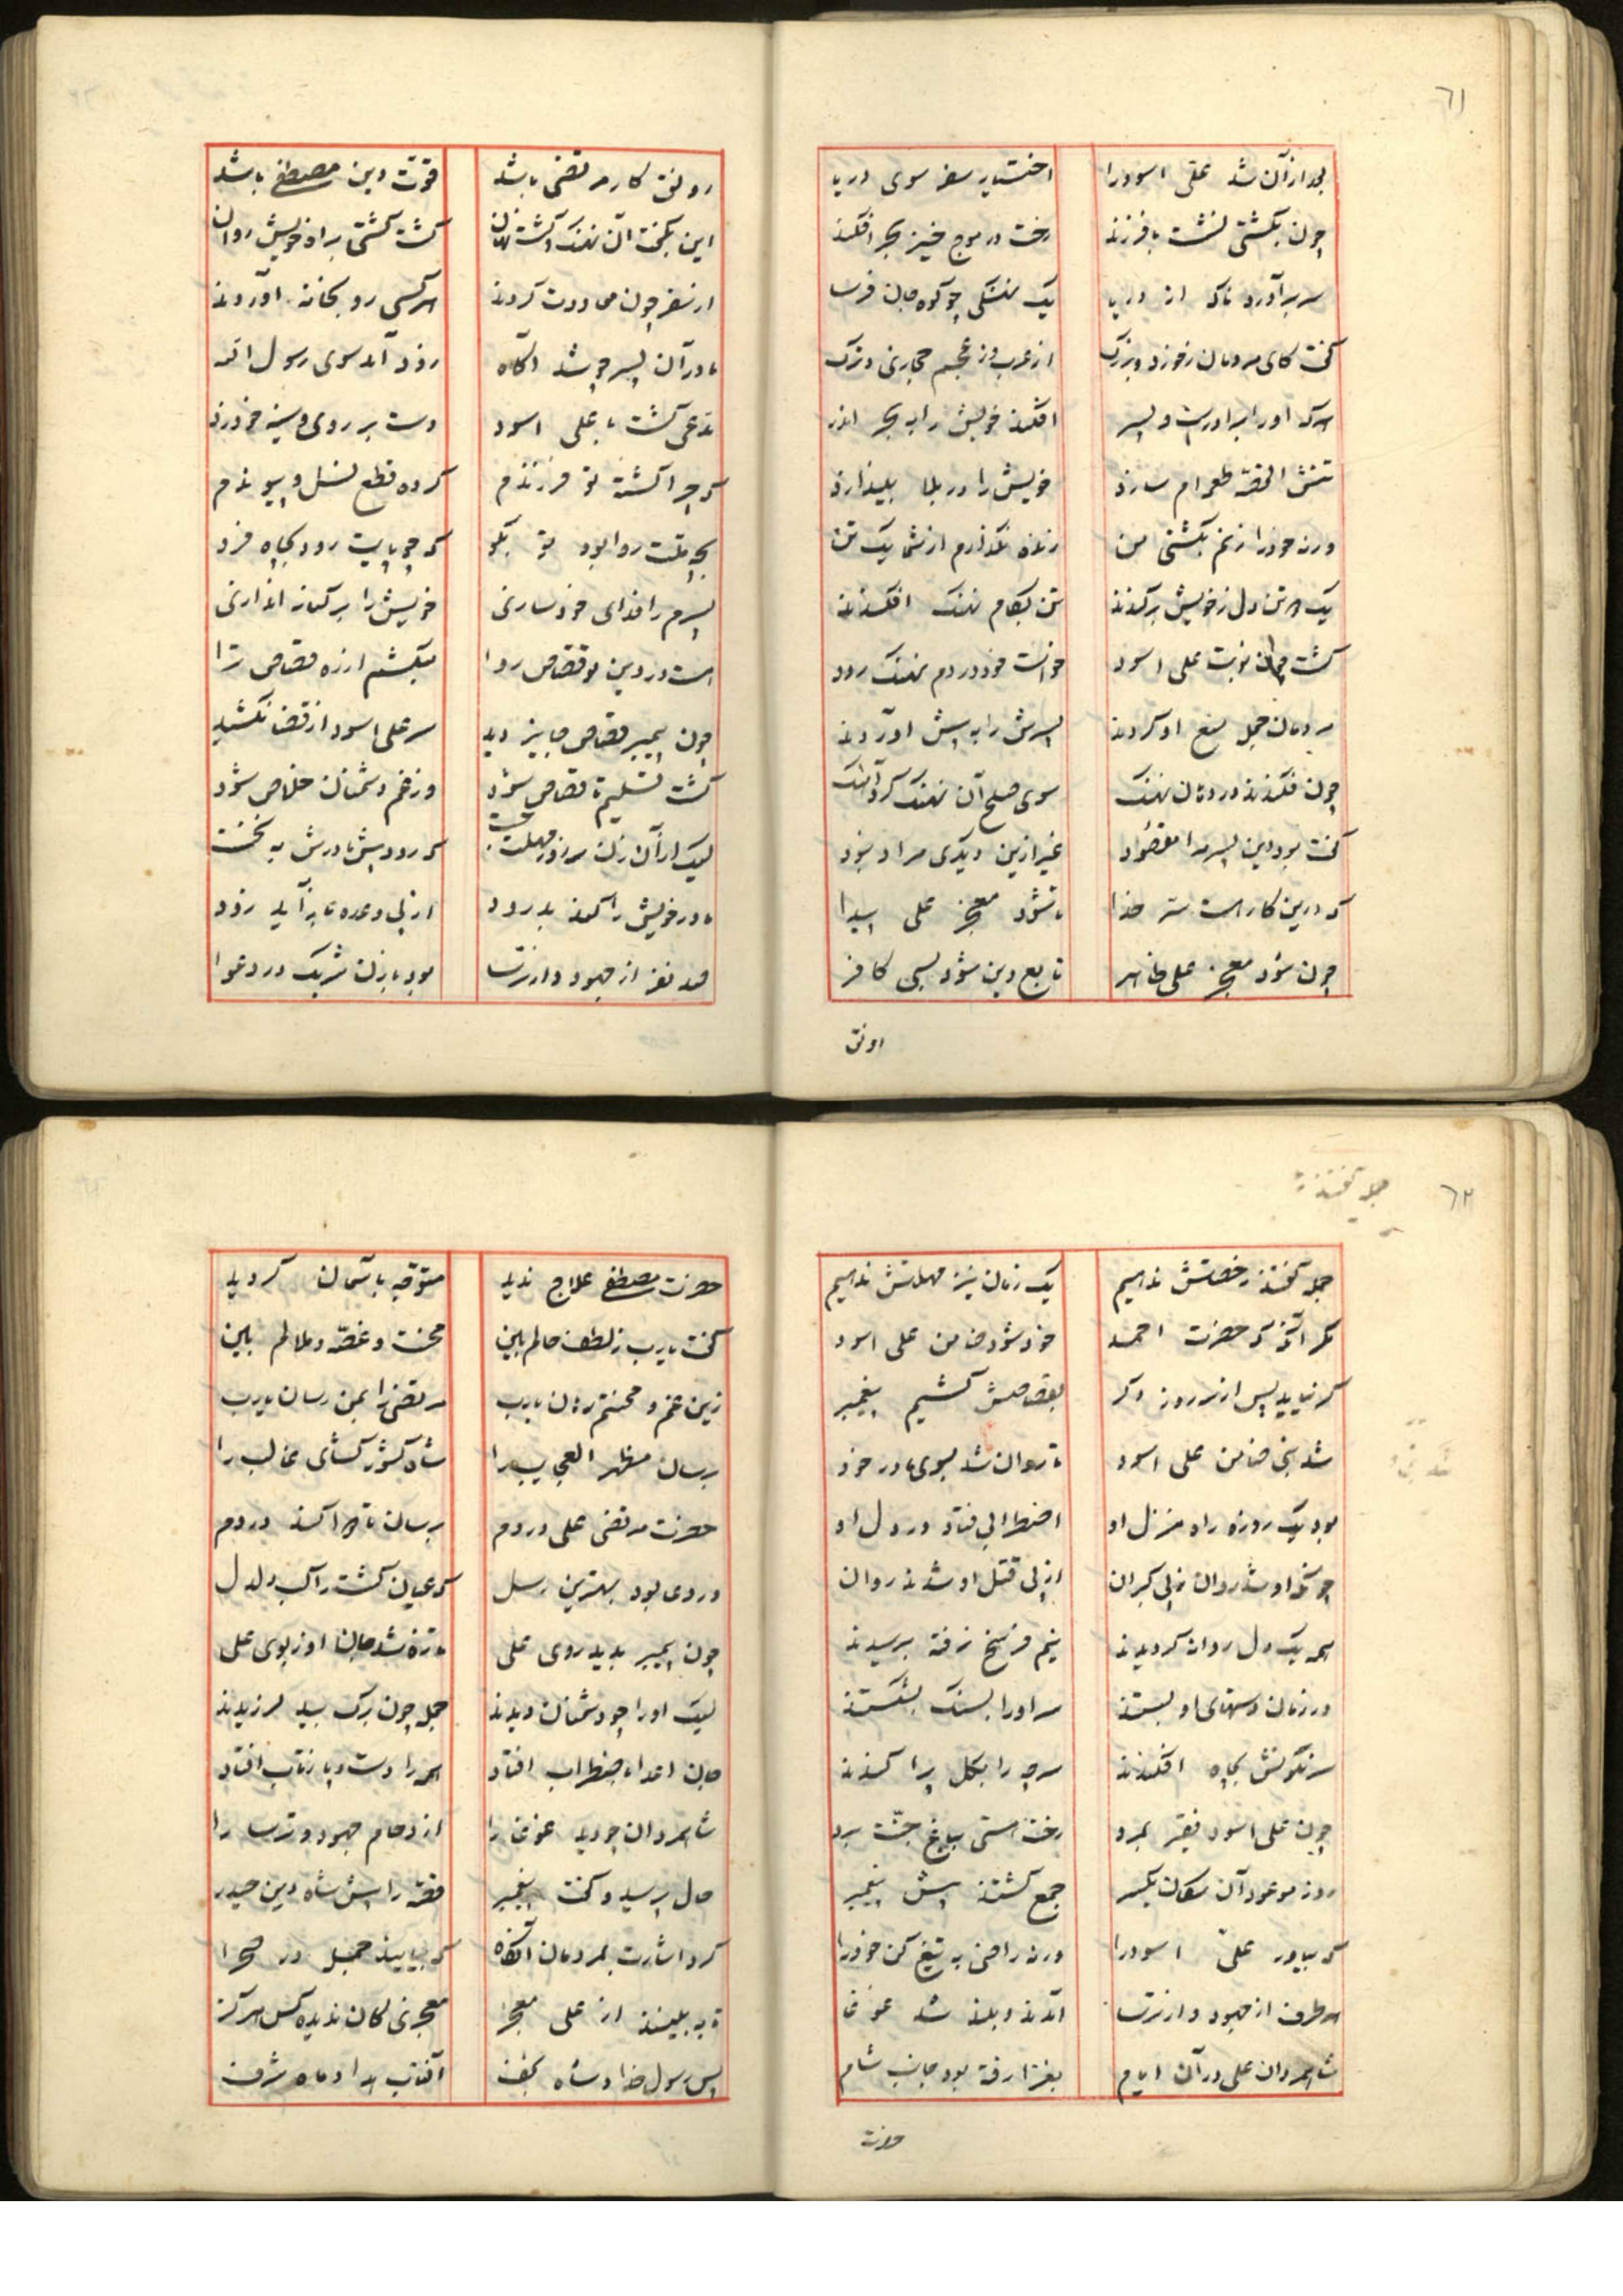 ٦١
بعد ازآن شد علی اسود را اختیار سفر سوی دریا
چون بکشتی نشست با فرزند رخت در موج خیز بحر افکند
سر برآورد ناکه از دریا یک نهنکی چو کوه جان فرسا
کفت کای مردمان ز خورد و بزرک از عرب وز عجم حجازی و ترک
هرکه او را برادرست و پسر افکند خویش را به بحر اندر
تنش القصه طعمه‌ام سازد خویش را در بلا بیندازد
ورنه خود را زنم بکشتی من زنده نکذارم از شما یک تن
یک هر تن دل ز خویش برکندند تن بکام نهنک افکندند
کشت چون نوبت علی اسود خواست خود در دم نهنک رود
مردمان جمله منع او کردند پسرش را به پیش آوردند
چون فکندند در دهان نهنک سوی صلح آن نهنک کرد آهنک
کفت بود این پسر مرا مقصود غیر ازین دیکری مراد نبود
که درین کار است سر خدا تا شود معجز علی پیدا
چون شود معجز علی ظاهر تابع دین شود بسی کافر
رونق
رونق کار مرتضی باشد قوت دین مصطفی باشد
این بکفت آن نهنک و کشت نهان کشت کشتی براه خویش روان
از سفر چون معاودت کردند هرکسی رو بخانه آوردند
مادر آن پسر چو شد آکاه زود آمد سوی رسول اله
مدعی کشت با علی اسود دست بر روی و سینه خود زد
که چرا کشته تو فرزندم کرده قطع نسل و پیوندم
بچه ملت روا بود تو بکو که چو پایت رود بچاه فرو
پسرم را فدای خود سازی خویش را بر کناره اندازی
هست در دین تو قصاص روا میکشم از ره قصاص ترا
چون پیمبر قصاص جایز دید سر علی اسود از قضا نکشید
کشت تسلیم تا قصاص شود وز زخم دشمنان خلاص شود
لیک از آن زن سه روز مهلت جست که رود پیش مادرش به نخست
مادر خویش را کند بدرود از پی وعده باز آید زود
صد نفر از جهود و از ترسا بود با زن شریک در دعوا
٦٢
جمله کفتند
جمله کفتند رخصتش ندهیم یک زمان نیز مهلتش ندهیم
مکر آنکه که حضرت احمد خود شود ضامن علی اسود
کر نیاید پس از سه روز دکر بقصاصش کشیم پیغمبر
شد نبی ضامن علی اسود تا روان شد بسوی مادر خود
بود یک روزه راه منزل او اضطرابی فتاد در دل او
چونکه او شد روان ز پی کبران از پی قتل او شدند روان
همه یک دل روانه کردیدند نیم فرسخ نرفته برسیدند
در زمان دستهای او بستند سر او را بسنک بشکستند
سرنکونش بچاه افکندند سر چه را بکل پراکندند
چون علی اسود فقیر بمرد رخت هستی بباغ جنت برد
روز موعود آن سکان یکسر جمع کشتند پیش پیغمبر
که بیاور علی اسود را ورنه راضی به تیغ کن خود را
هر طرف از جهود و از ترسا آمدند و بلند شد غوغا
شاه مردان علی در آن ایام بغزا رفته بود جانب شام
حضرت
حضرت مصطفی علاج ندید متوجه باسمان کردید
کفت یارب ز لطف حالم بین محنت و غصه و ملالم بین
زین غم و محنتم رهان یارب مرتضی را بمن رسان یارب
برسان مظهر العجایب را شاه کشور کشای غالب را
حضرت مرتضی علی در دم برسان تا دوا کند دردم
در دعا بود بهترین رسل که عیان کشت راکب دلدل
چون پیمبر بدید روی علی تازه شد جان او ز بوی علی
لیک او را چو دشمنان دیدند جمله چون برک بید لرزیدند
جان اعدا باضطراب افتاد همه را دست و پا ز تاب افتاد
شاه مردان چو دید غوغا را ازدحام جهود و ترسا را
حال پرسید و کفت پیغمبر قصه را پیش شاه دین حیدر
کرد اشارت بمردمان آنکاه که بیایند جمله در صحرا
تا به بینند از علی معجز معجزی کان ندیده کس هرکز
پس رسول خدا و شاه نجف آفتاب هدا و ماه شرف